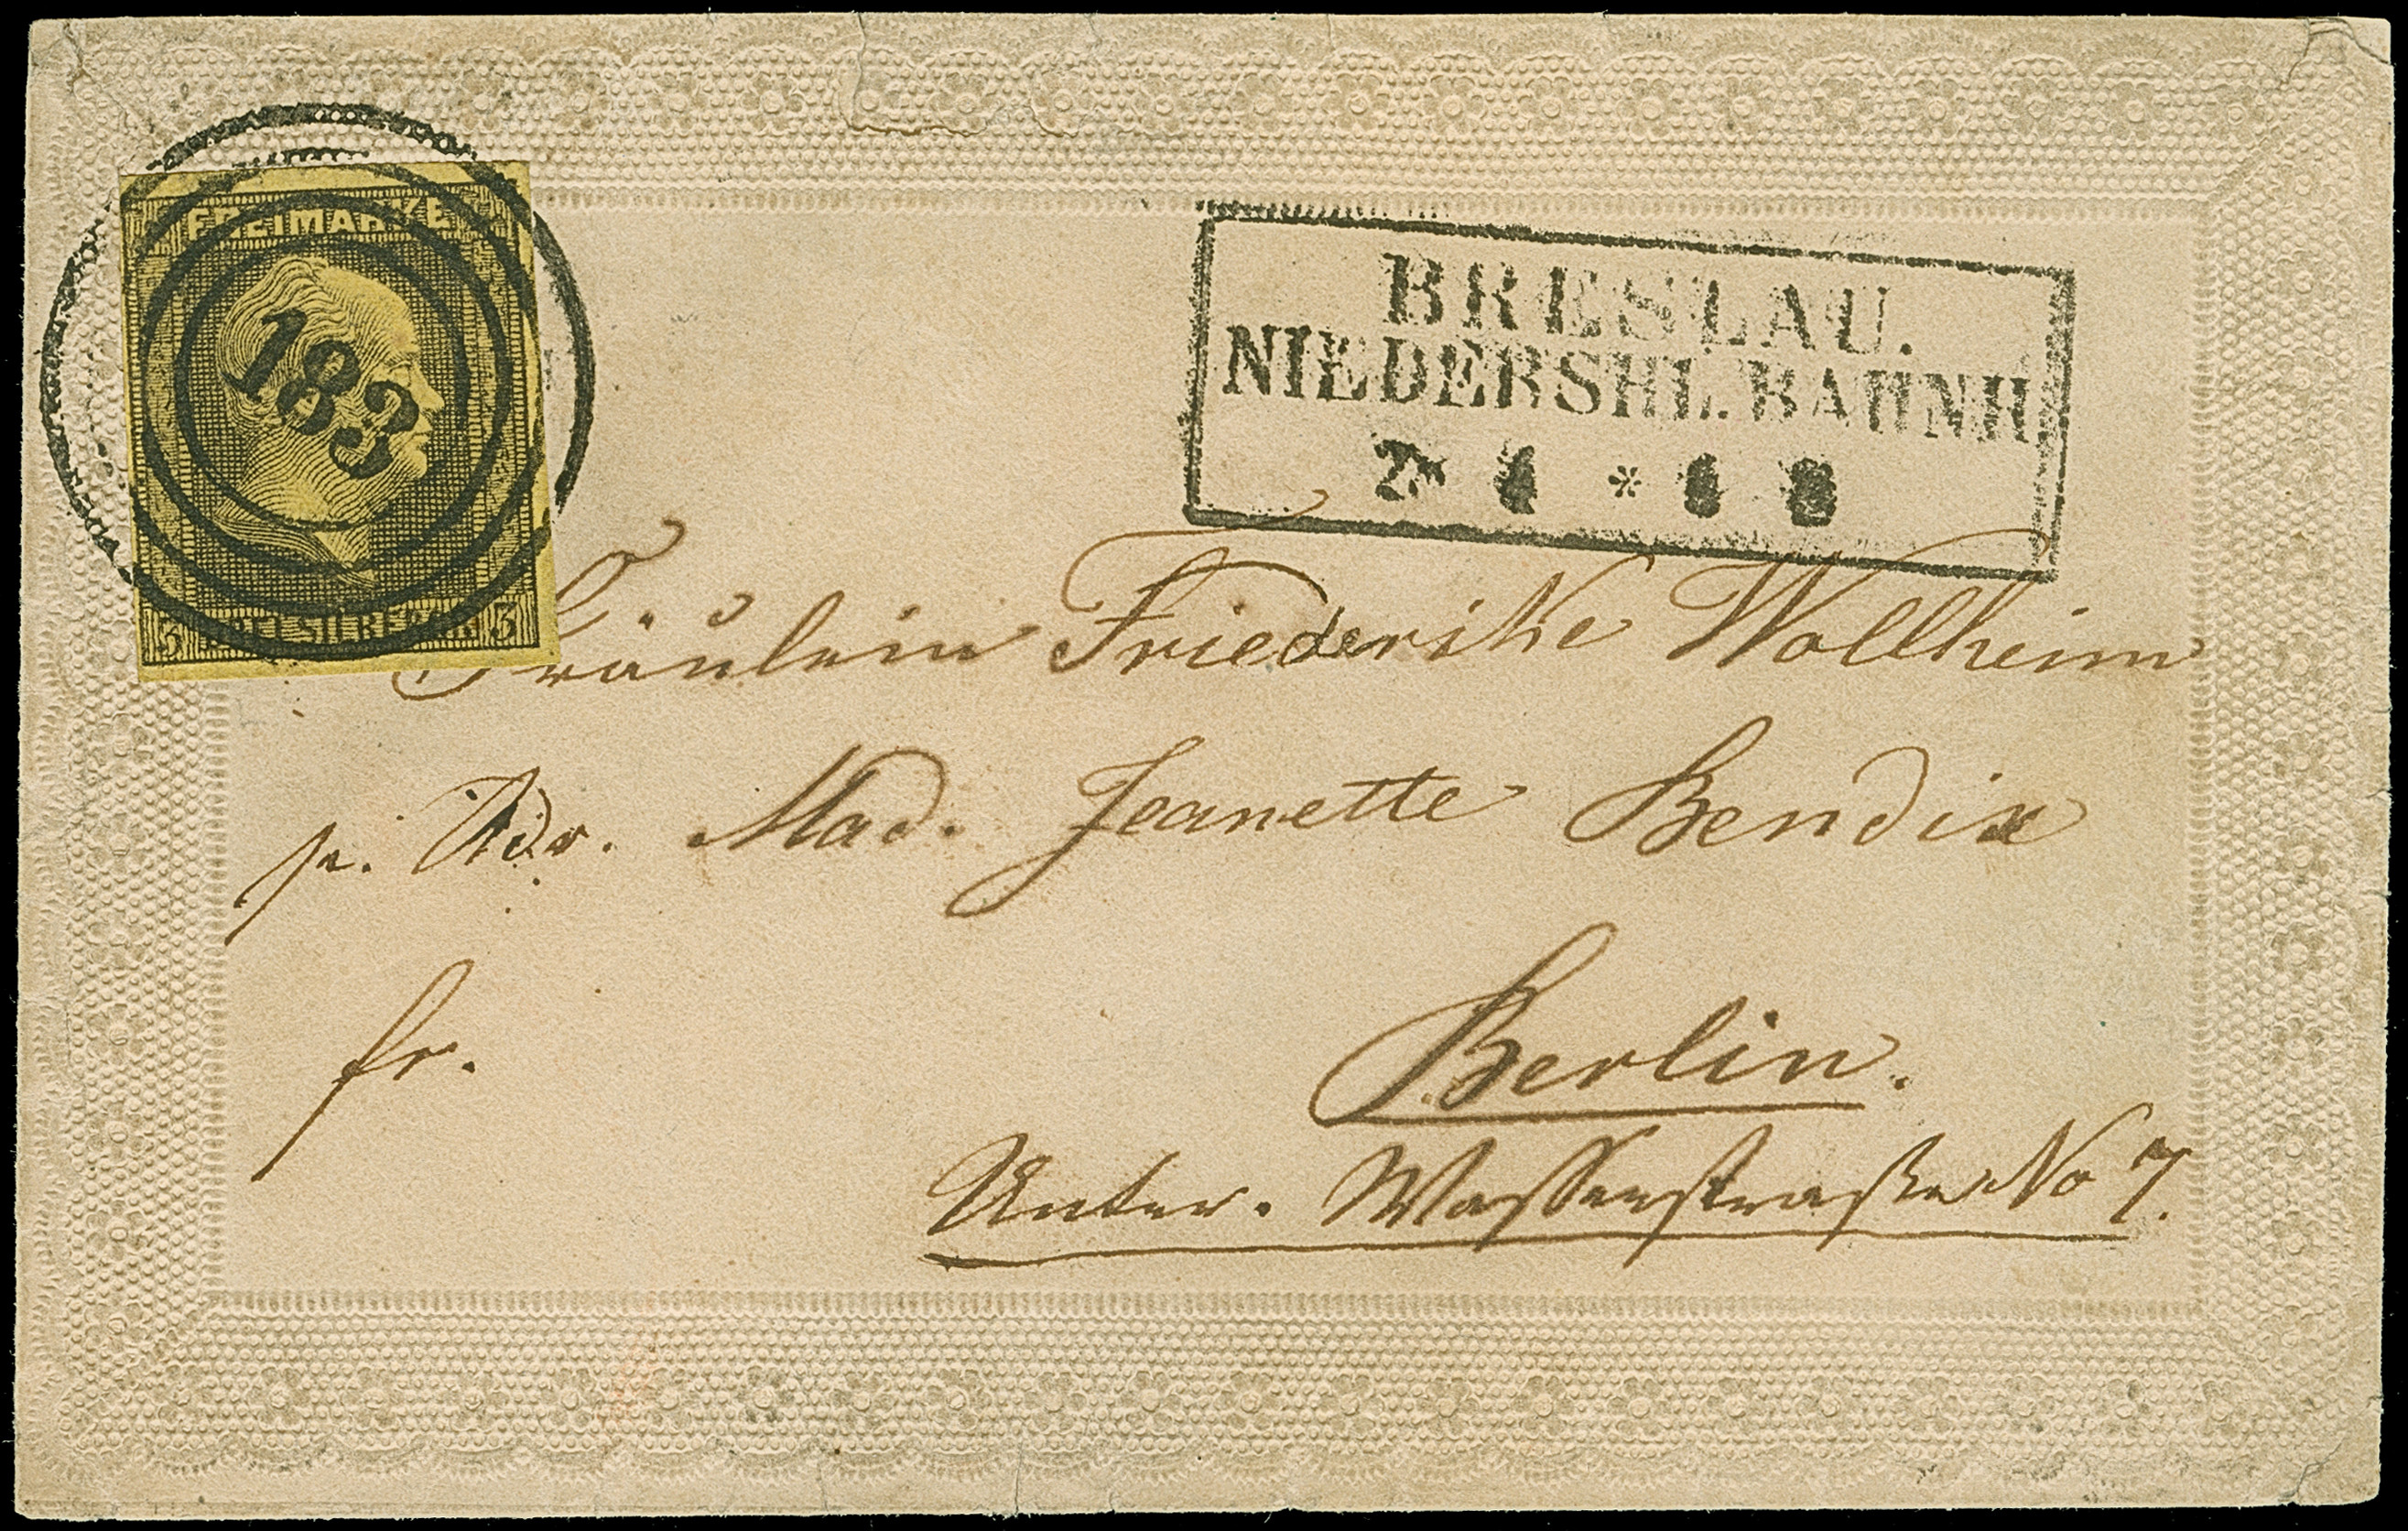 FREIMARKE
183
3 SILBERGR. 3
BRESLAU.
NIEDERSHL.BAHNH
*
Fräulein Friederike Wollheim
p. Adr. Mad. Jeanette Bendix
fr.
Berlin.
Unter. Wasserstraße No 7.